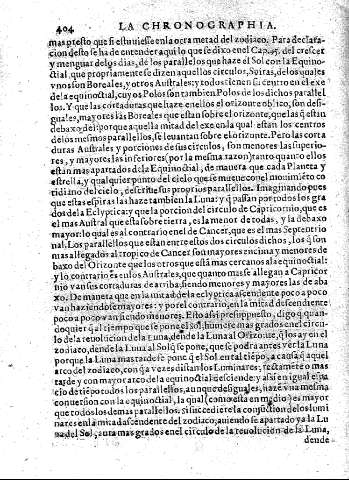 404 LA CHRONOGRAPHIA.
mas presto que si estuuiesse en la otra metad del zodiaco. Para declara-
cion desto se ha de entender aqui lo que se dixo en el Cap. 45. del crescer
y menguar de los dias, de los parallelos que haze el Sol con la Equino-
ctial, que propriamente se dizen aquellos circulos, Spiras, delos quales
vnos son Boreales, y otros Australes: y todos tienen su centro en el exe
de la equinoctial, cuyos Polos son tambien Polos de los dichos parallel
los. Y que las cortaduras que haze en ellos el orizonte oblico, son desi-
guales, mayores las Boreales que estan sobre el orizonte, que las q̃ estan
debaxo del porque aquella mitad del exe en la qual estan los centros
de los mesmos parallelos, se leuantan sobre el orizonte. Pero las corta
duras Australes y porciones de sus circulos, son menores las superio-
res, y mayores las inferiores (por la mesma razon) tanto quanto ellos
estan mas apartados de la Equinoctial, de manera que cada Planeta y
estrella, y qualquier punto del cielo que se mueue con el mouimiẽto co
tidiano del cielo, descriue sus proprios parallelos. Imaginando pues
que estas espiras las haze tambien la Luna: y q̃ passan por todos los gra
dos de la Ecliptica: y que la porcion del circulo de Capricornio, que es
el mas Austral que esta sobre tierra, es la menor de todas, y la debaxo
mayor: lo qual es al contrario en el de Cancer, que es el mas Septentrio
nal. Los parallelos que estan entre estos dos circulos dichos, los q̃ son
mas allegados al tropico de Cancer son mayores encima y menores de
baxo del Orizonte que los otros que está mas cercanos a la equinoctial:
y lo contrario es a los Australes, que quanto mas se allegan a Capricor
nio van sus cortaduras de arriba siendo menores y mayores las de aba
xo. De manera que en la mitad de la ecliptica ascendiente poco a poco
van haziendose mayores: y por el contrario en la mitad descendiente
poco a poco van siendo menores. Esto assi presuppuesto, digo q̃ quan-
do quier q̃ al tiempo que se pone el sol, huuiere mas grados en el circu-
lo de la reuolucion de la Luna, dende la Luna al Orizonte, q̃ los ay en el
zodiaco, dende la Luna al Sol q̃ se pone, que se podra antes ver la Luna
porque la Luna mas tarde se pone q̃ el Sol en tal tiẽpo, a causa q̃ aquel
arco del zodiaco, con q̃ a vezes distan los Luminares, rectamẽte o mas
tarde y con mayor arco de la equinoctial desciende: y assi en igual espa
cio de tiẽpo todos los parallelos, aunque desiguales, hazẽ vna mesma
conuersion con la equinoctial, la qual (como esta en medio) es mayor
que todos los demas parallelos. si sucediere la conjuctiõ de los lumi
nares en la mitad ascendẽte del zodiaco, auiendo se apartado ya la Lu
na del Sol, aura mas grados en el circulo de la reuolucion de la Luna,
dende